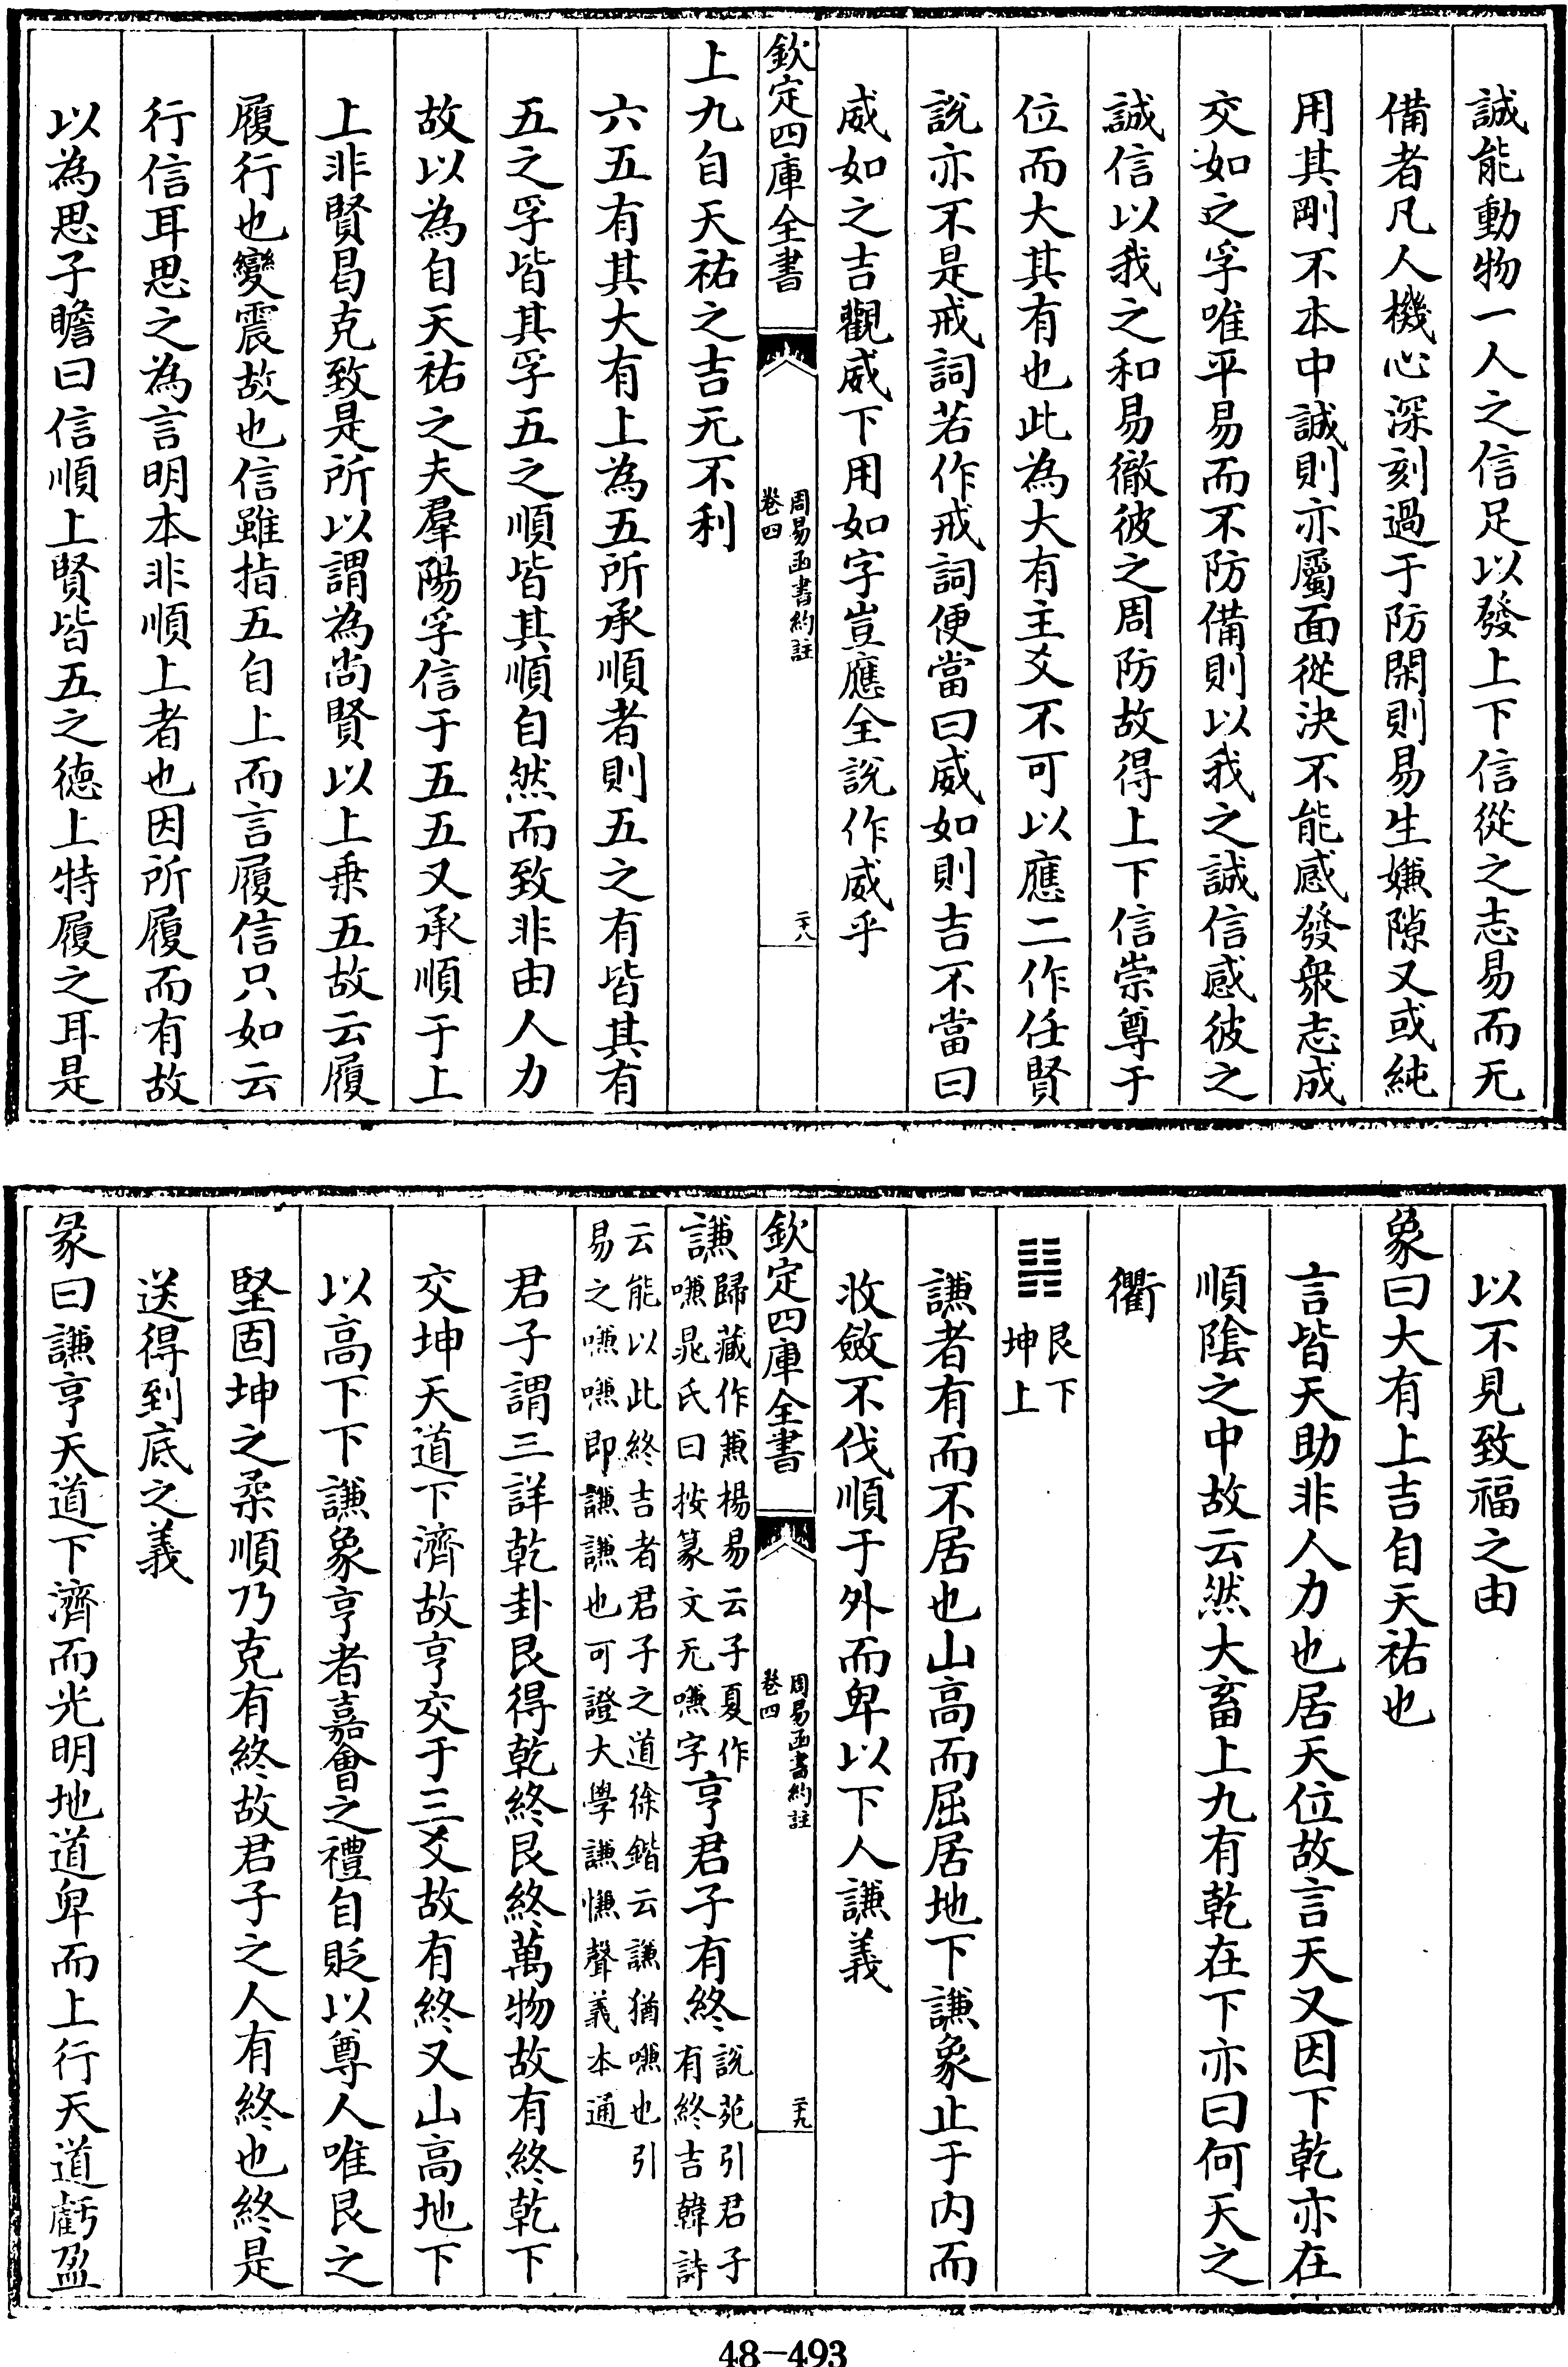 誠能動物一人之信足以發上下信從之志易而无
備者凡人機心深刻過于防閑則易生嫌隙又或純
用其剛不本中誠則亦屬面從決不能感發衆志成
交如之孚唯平易而不防備則以我之誠信感彼之
誠信以我之和易徹彼之周防故得上下信崇尊于
位而大其有也此為大有主爻不可以應二作任賢
說亦不是戒詞若作戒詞便當曰威如則吉不當曰
威如之吉觀威下用如字豈應全說作威乎
欽定四庫全書
周易函書約註
卷四
二十八
上九自天祐之吉无不利
六五有其大有上為五所承順者則五之有皆其有
五之孚皆其孚五之順皆其順自然而致非由人力
故以為自天祐之夫羣陽孚信于五五又承順于上
上非賢曷克致是所以謂為尚賢以上乗五故云履
履行也變震故也信雖指五自上而言履信只如云
行信耳思之為言明本非順上者也因所履而有故
以為思子瞻曰信順上賢皆五之德上特履之耳是
以不見致福之由
象曰大有上吉自天祐也
言皆天助非人力也居天位故言天又因下乾亦在
順陰之中故云然大畜上九有乾在下亦曰何天之
衢
䷎
艮下
坤上
謙者有而不居也山高而屈居地下謙象止于内而
收斂不伐順于外而卑以下人謙義
欽定四庫全書
周易函書約註
卷四
二十九
謙歸藏作兼楊易云子夏作嗛晁氏曰按篆文无嗛字亨君子有終說苑引君子有終吉韓詩
云能以此終吉者君子之道徐鍇云謙猶嗛也引易之嗛嗛即謙謙也可證大學謙慊聲義本通
君子謂三詳乾卦艮得乾終艮終萬物故有終乾下
交坤天道下濟故亨交于三爻故有終又山高地下
以高下下謙象亨者嘉會之禮自貶以尊人唯艮之
堅固坤之柔順乃克有終故君子之人有終也終是
送得到底之義
彖曰謙亨天道下濟而光明地道卑而上行天道虧盈
48-493